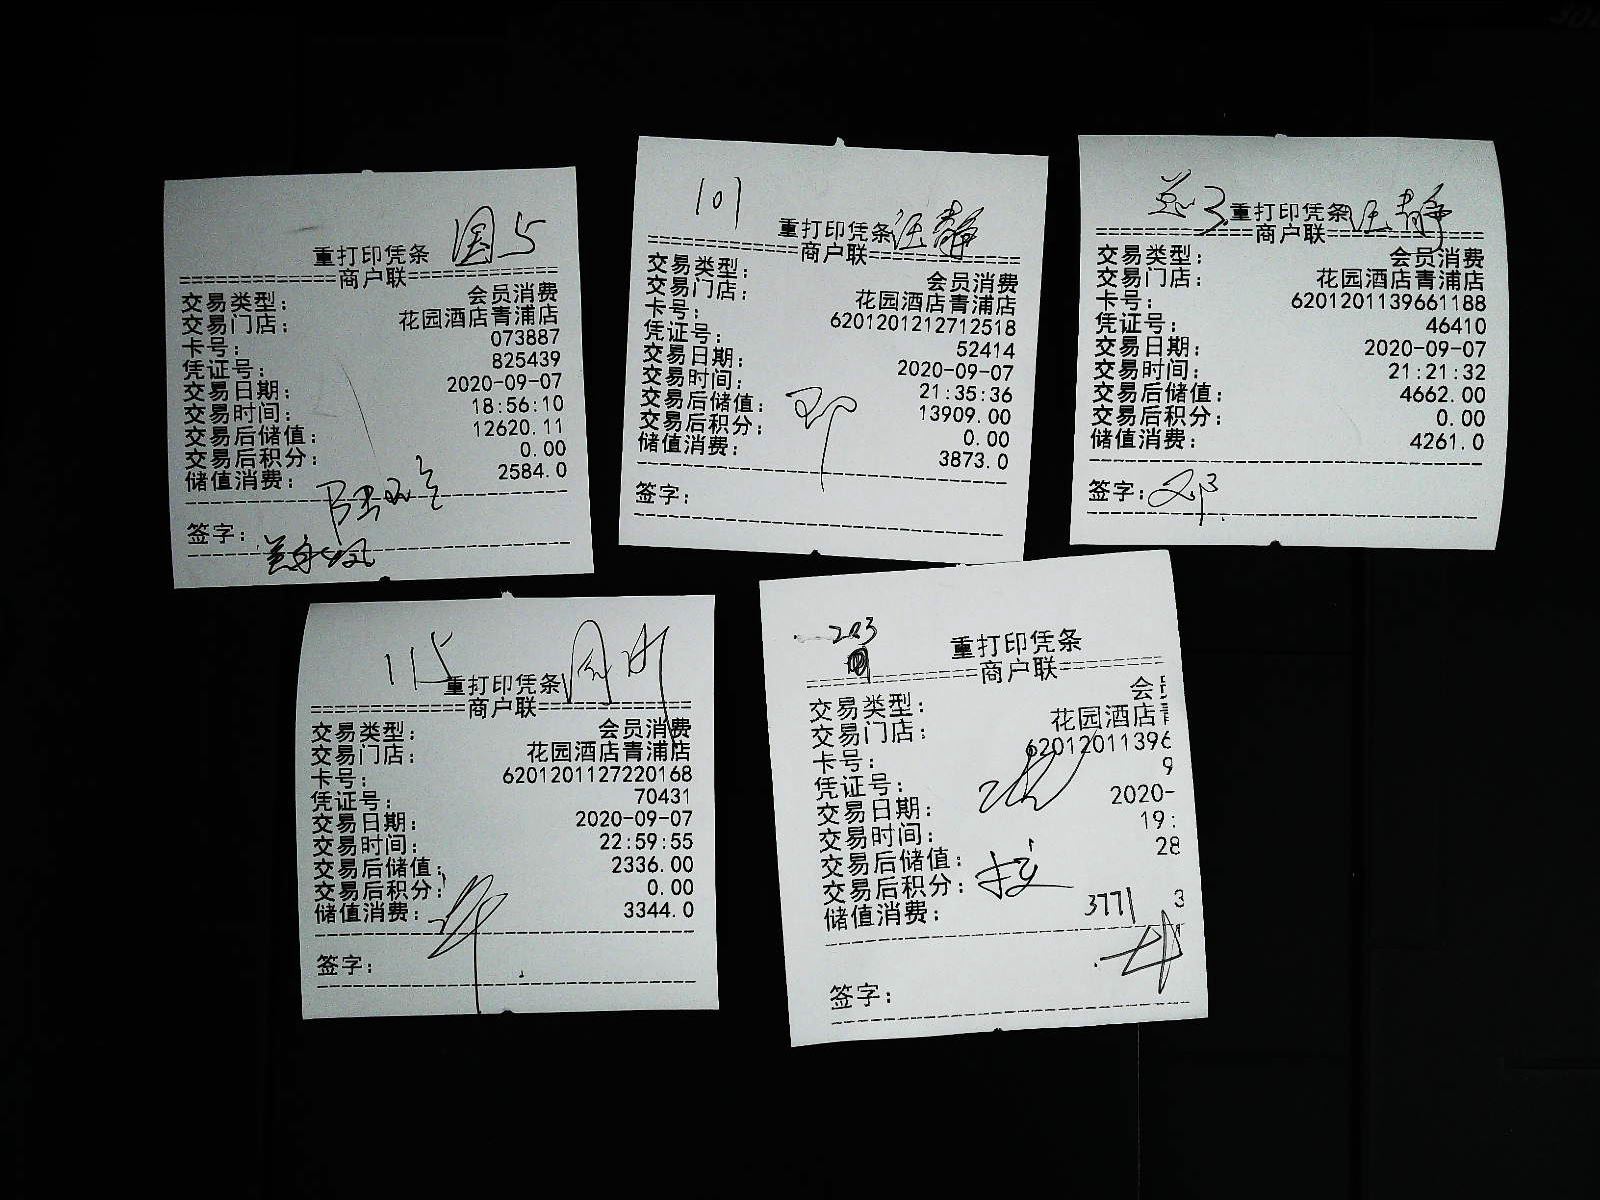 国5
重打印凭条
商户联
交易类型: 会员消费
交易门店: 花园酒店青浦店
卡号: 073887
凭证号: 825439
交易日期: 2020-09-07
交易时间: 18:56:10
交易后储值: 12620.11
交易后积分: 0.00
储值消费: 2584.0
签字:
101
重打印凭条 汪静
商户联
交易类型: 会员消费
交易门店: 花园酒店青浦店
卡号: 6201201212712518
凭证号: 52414
交易日期: 2020-09-07
交易时间: 21:35:36
交易后储值: 13909.00
交易后积分: 0.00
储值消费: 3873.0
签字:
3 重打印凭条 汪静
商户联
交易类型: 会员消费
交易门店: 花园酒店青浦店
卡号: 6201201139661188
凭证号: 46410
交易日期: 2020-09-07
交易时间: 21:21:32
交易后储值: 4662.00
交易后积分: 0.00
储值消费: 4261.0
签字:
115
重打印凭条
商户联
交易类型: 会员消费
交易门店: 花园酒店青浦店
卡号: 6201201127220168
凭证号: 70431
交易日期: 2020-09-07
交易时间: 22:59:55
交易后储值: 2336.00
交易后积分: 0.00
储值消费: 3344.0
签字:
203
重打印凭条
商户联
交易类型: 会
交易门店: 花园酒店
卡号: 62012011396
凭证号: 9
交易日期: 2020-
交易时间: 19:
交易后储值: 28
交易后积分:
储值消费: 3771 3
签字: